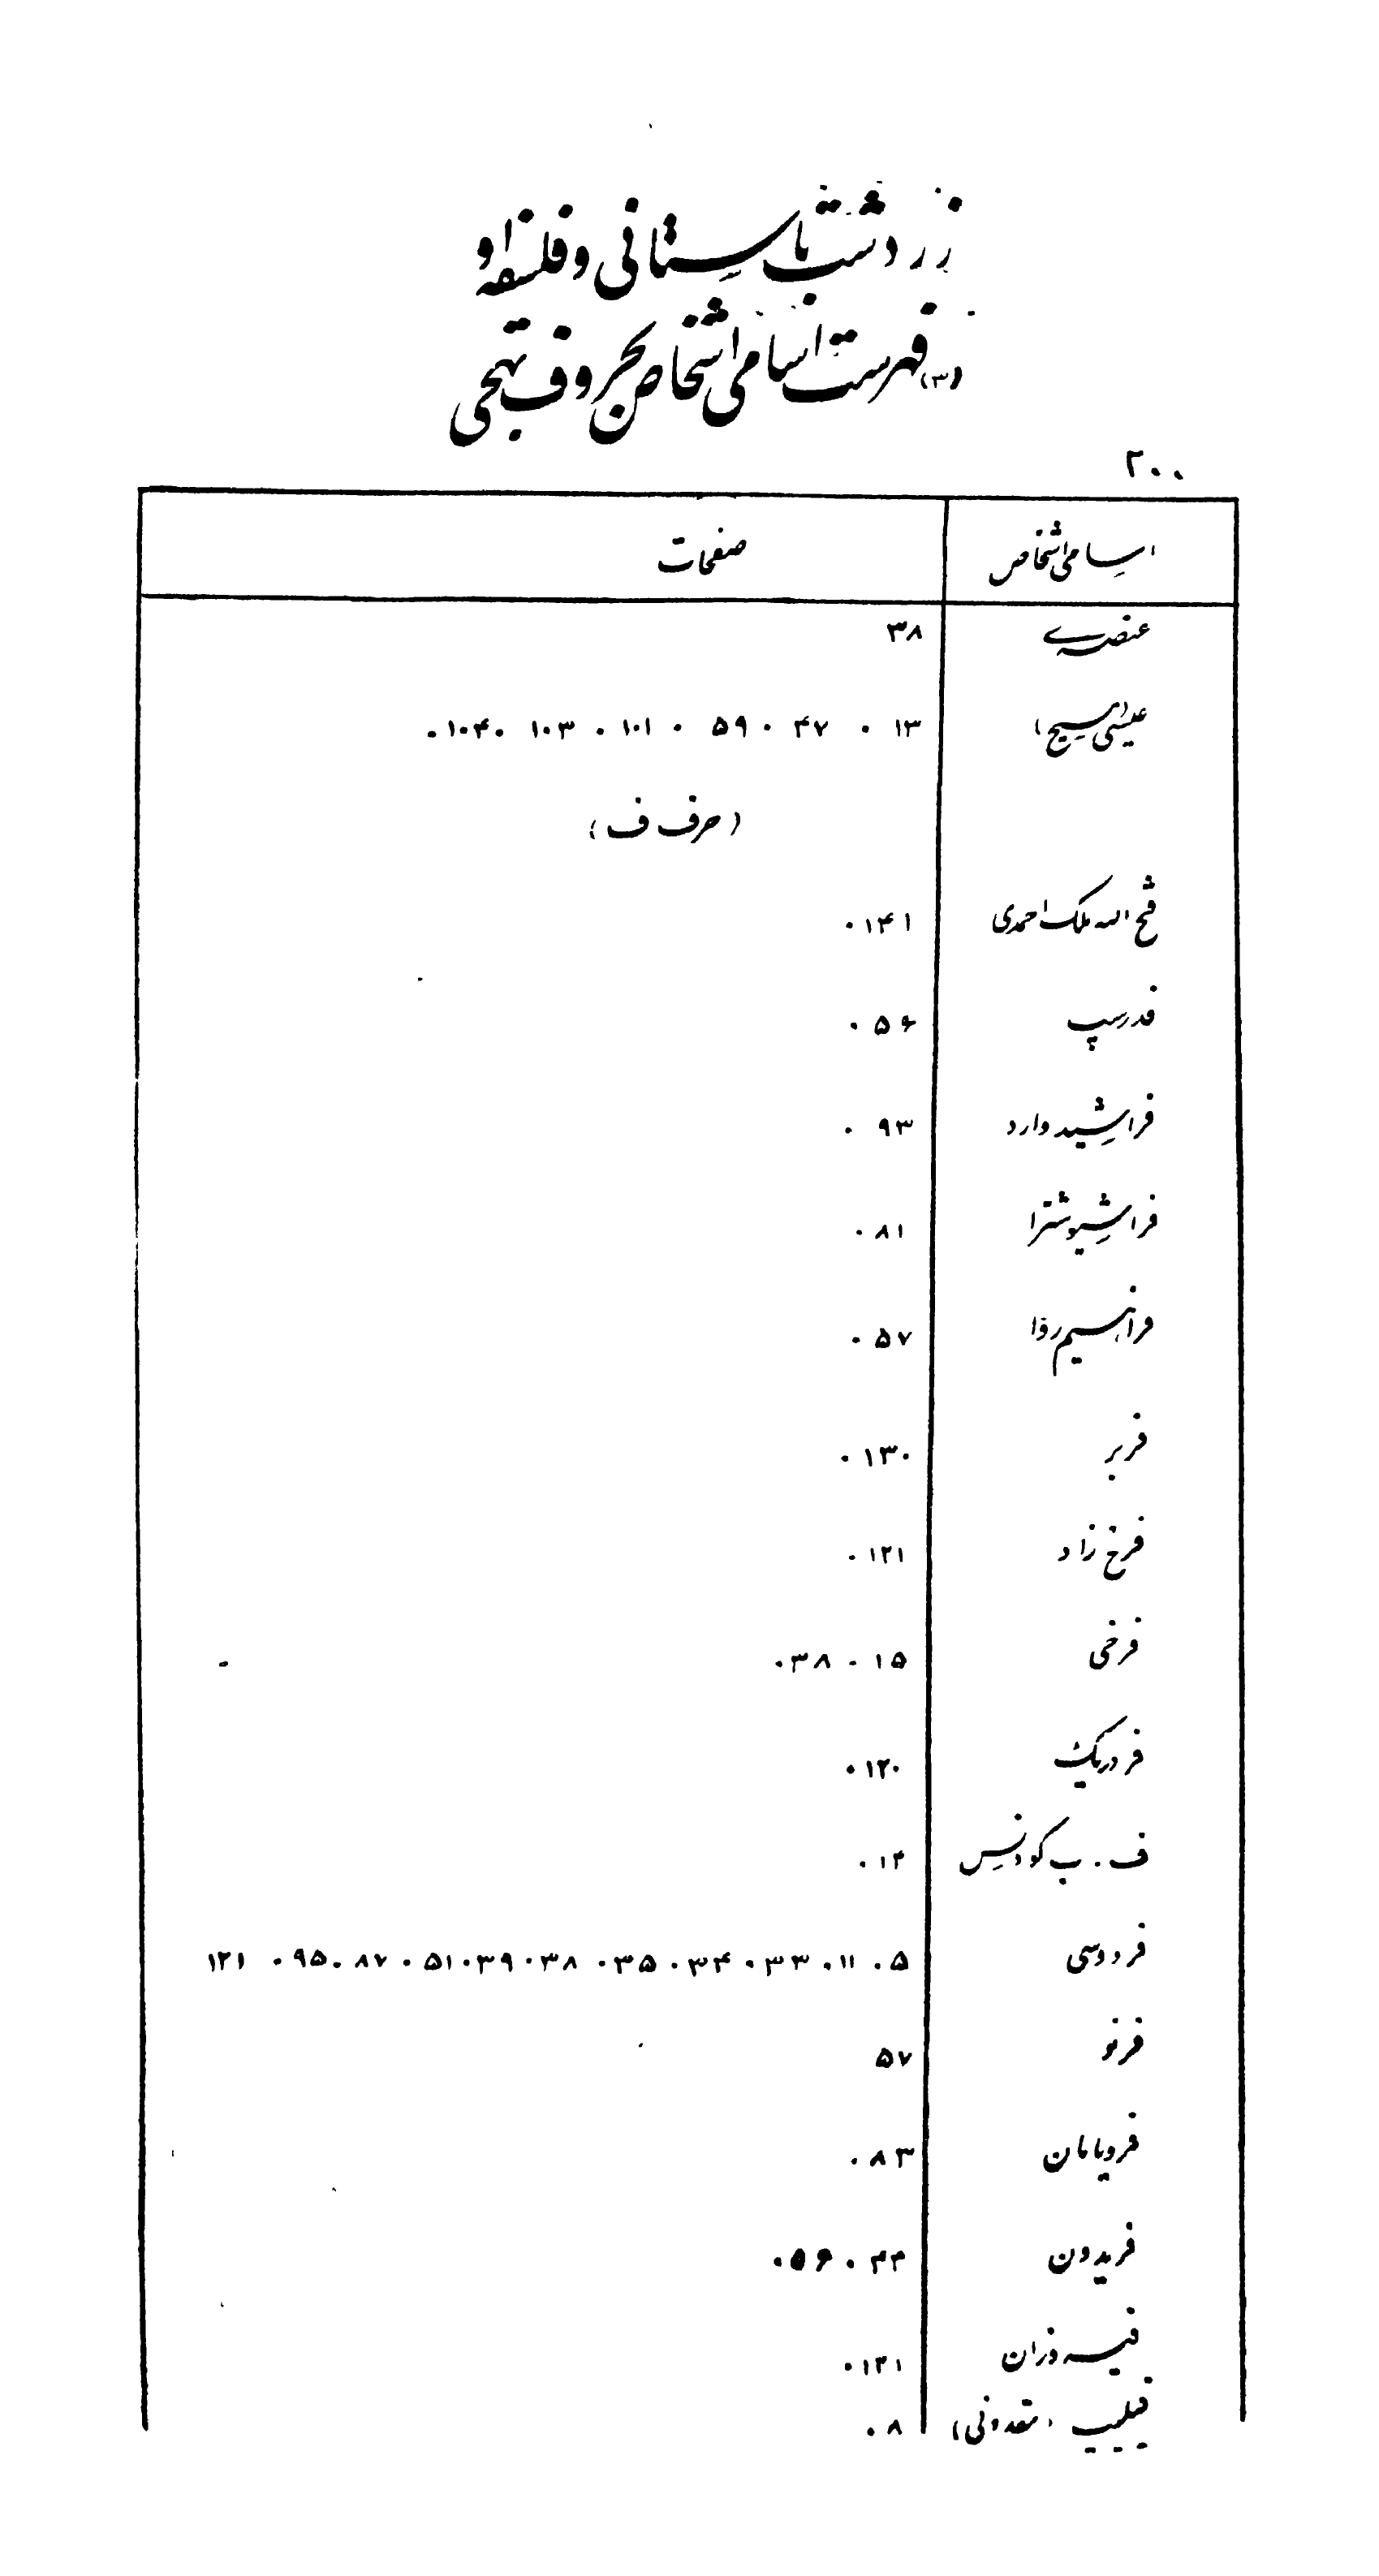 زردشت باستانی و فلسفه او
(۳) فهرست اسامی اشخاص بحروف تهجی
۲۰۰
اسامی اشخاص صفحات
عنصری ۳۸
عیسی (مسیح) ۱۳ . ۴۷ . ۵۹ . ۱۰۱ . ۱۰۳ . ۱۰۴ .
(حرف ف)
فتح الله ملک احمدی ۱۴۱ .
فدرسپ ۵۶ .
فراشید وارد ۹۳ .
فراشیوشترا ۸۱ .
۵۷ .
فربر ۱۳۰ .
فرخ زاد ۱۲۱ .
فرخی ۱۵ . ۳۸ .
فردریک ۱۲۰ .
ف . ب کودنس ۱۴ .
فردوسی ۵ . ۱۱ . ۳۳ . ۳۴ . ۳۵ . ۳۸ . ۳۹ . ۵۱ . ۸۷ . ۹۵ . ۱۲۱
فرنو ۵۷
فرویامان ۸۳ .
فریدون ۴۴ . ۵۶ .
۱۴۱ .
فیلیپ (مقدونی) ۸ .